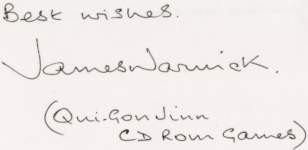 Best wishes.
James Warwick.
(Qui-Gon Jinn
CD Rom Games)